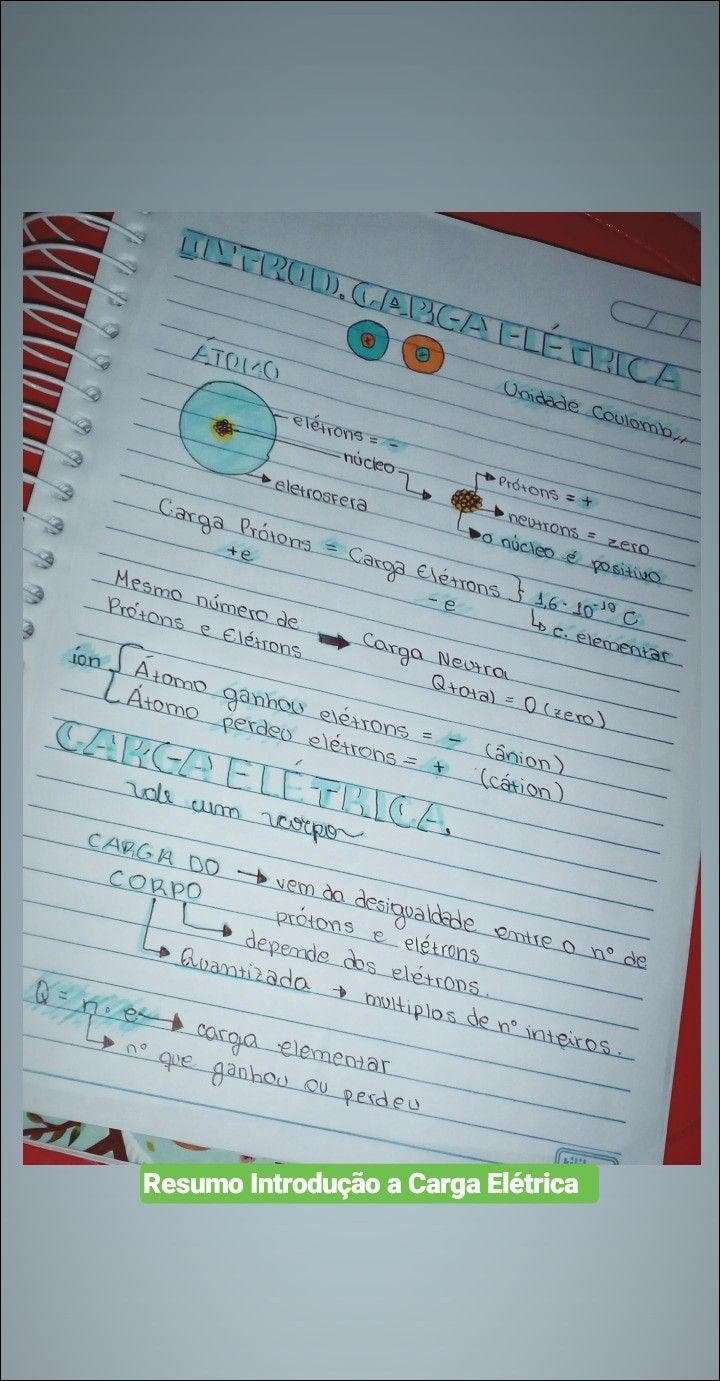 INTROD. CARGA ELÉTRICA
Unidade Coulomb
ÁTOMO
elétrons = -
núcleo
eletrosfera
Prótons = +
neutrons = zero
o núcleo é positivo
Carga Prótons = Carga Elétrons } 1,6 · 10⁻¹⁹ C
+e - e
c. elementar
Mesmo número de
Prótons e Elétrons
Carga Neutra
Qtotal = 0 (zero)
íon { Átomo ganhou elétrons = - (ânion)
Átomo perdeu elétrons = + (cátion)
CARGA ELÉTRICA
de um corpo
CARGA DO
CORPO
vem da desigualdade entre o nº de
prótons e elétrons
depende dos elétrons.
Quantizada → multiplos de nº inteiros.
Q = n · e → carga elementar
nº que ganhou ou perdeu
Resumo Introdução a Carga Elétrica